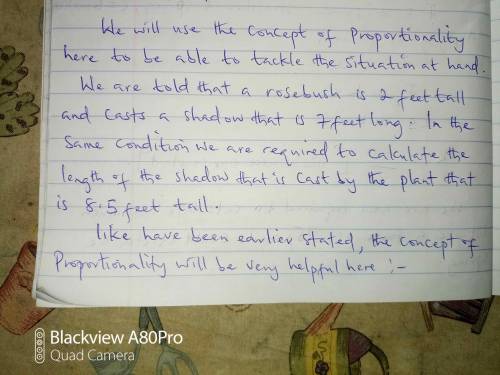 We will use the concept of Proportionality
here to be able to tackle the situation at hand.
We are told that a rosebush is 2 feet tall
and casts a shadow that is 7 feet long. In the
Same Condition we are required to calculate the
length of the shadow that is cast by the plant that
is 8.5 feet tall.
like have been earlier stated, the concept of
Proportionality will be very helpful here :-
Blackview A80Pro
Quad Camera